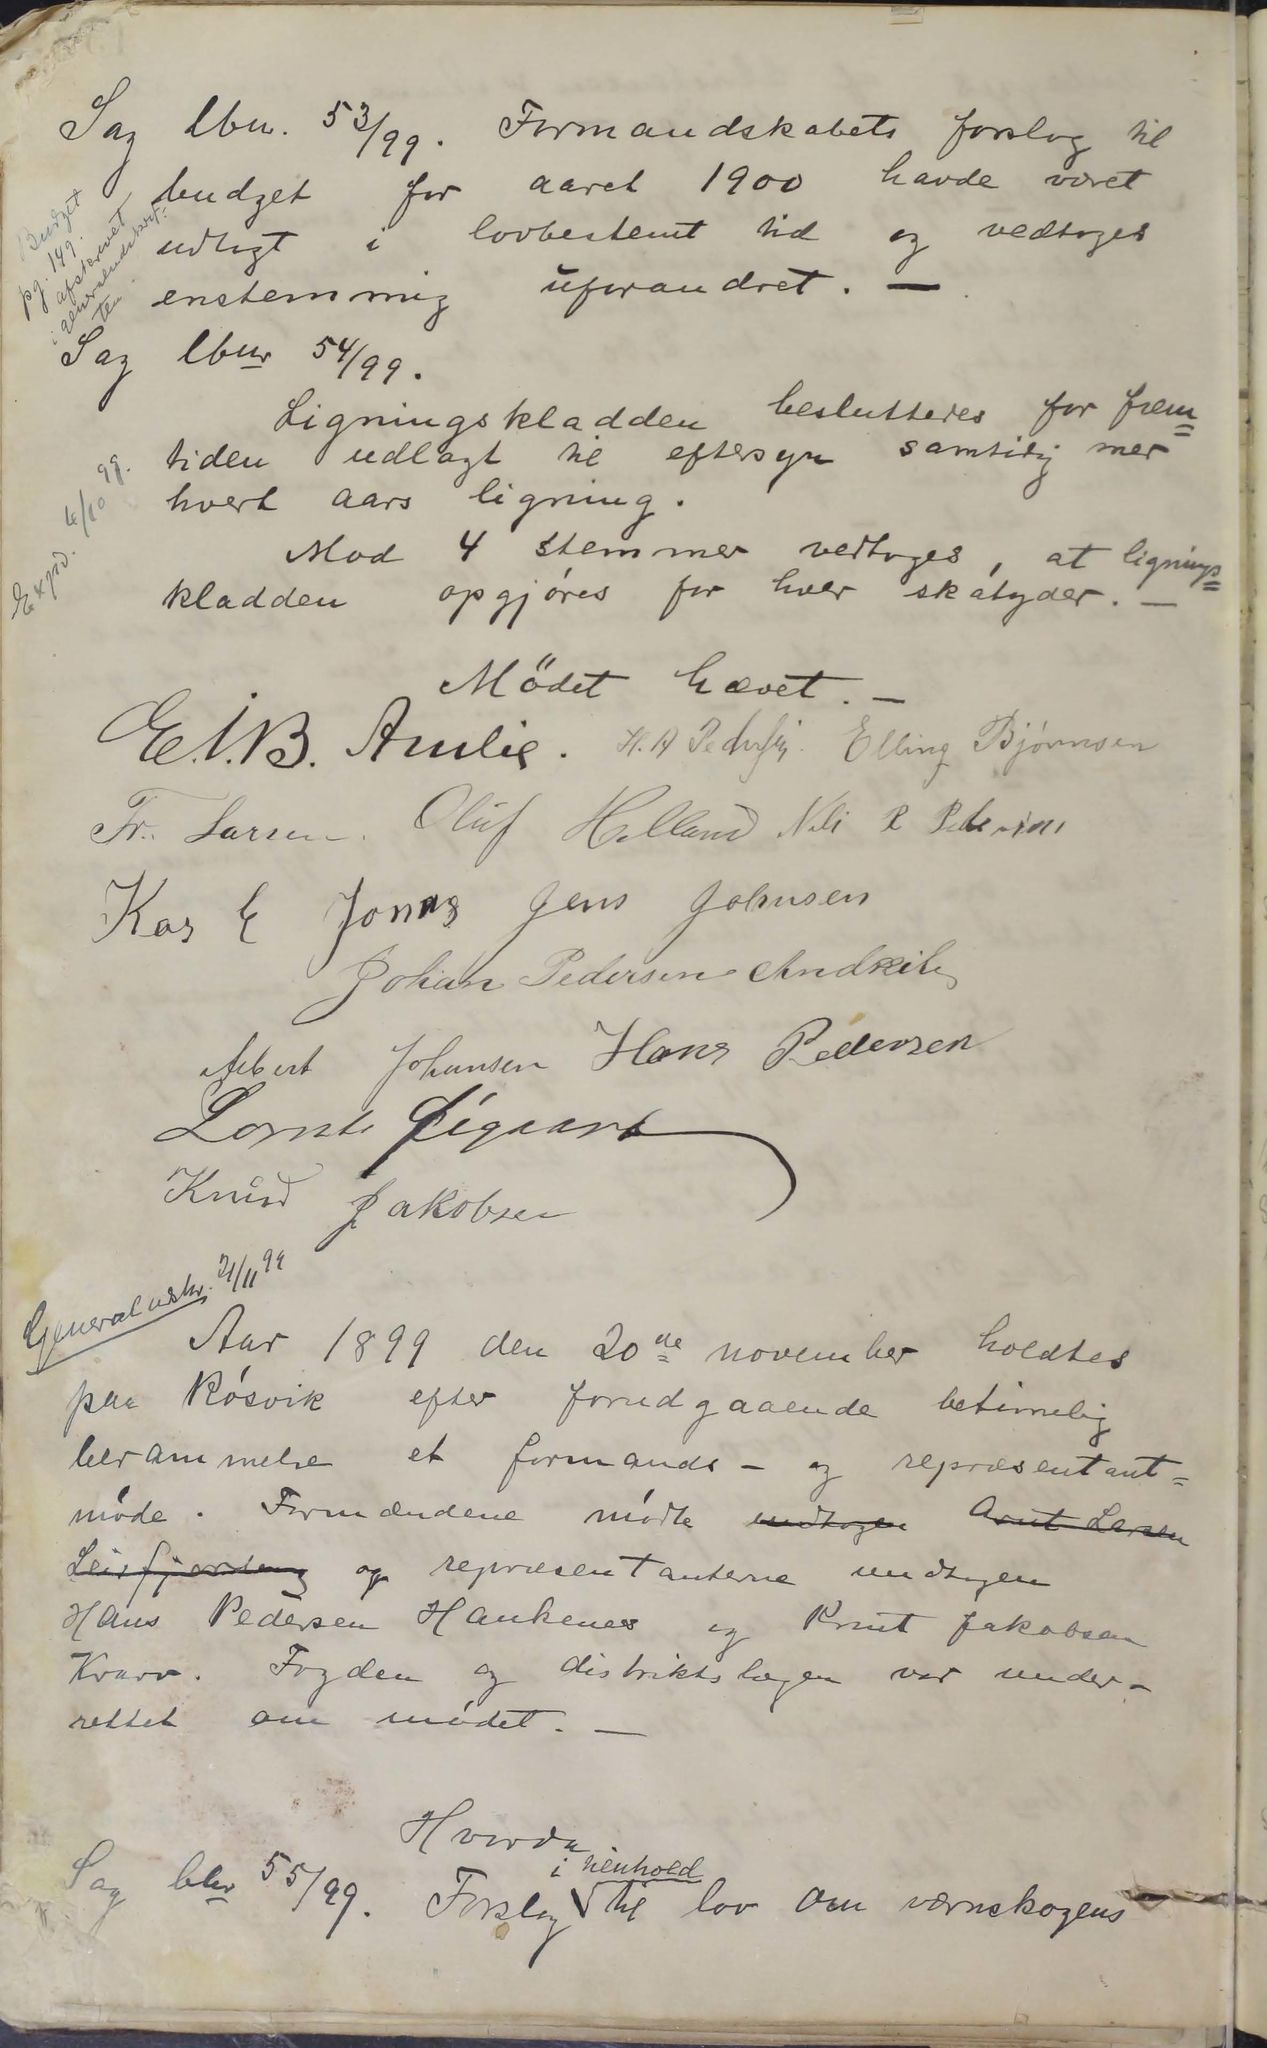 Sag lbnr. 53/99. Formandskabets forslag til
budget for aaret 1900 havde været
udlagt i lovbestemt tid og vedtoges
enstemmig uforandret. —
Budget
pg. 149.
afskrevet
Sag lbnr 54/99.
Ligningskladden besluttedes for frem=
tiden udlagt til eftersyn samtidig med
hvert aars ligning.
Mod 4 stemmer vedtoges, at lignings=
kladden opgjøres for hver skatyder. —
Exprd. 6/10 99.
Mödet hævet. —
E. A. B. Aulie. H. A Pedersen. Elling Bjørnsen
Fr. Larsen. Oluf Helland Nils R Pedersen
Kas E Jonas Jens Johnsen
Johan Pedersen Andkil
Albert Johansen Hans Pedersen
Lornts Øigaard
Knud Jakobsen
Generaludskr. 21/11 99
Aar 1899 den 20de november holdtes
paa Røsvik efter forudgaaende betimelig
berammelse et formands- og repræsentant=
møde. Formændene mødte undtagen Arnt Larsen
Leirfjorden og repræsentanterne undtagen
Hans Pedersen Hankenes og Knut Jakobsen
Kvarv. Fogden og distriktslægen var under-
rettet om mødet. —
Hvorda
i henhold
Sag lbnr 55/99. Forslag til lov om værnskogens